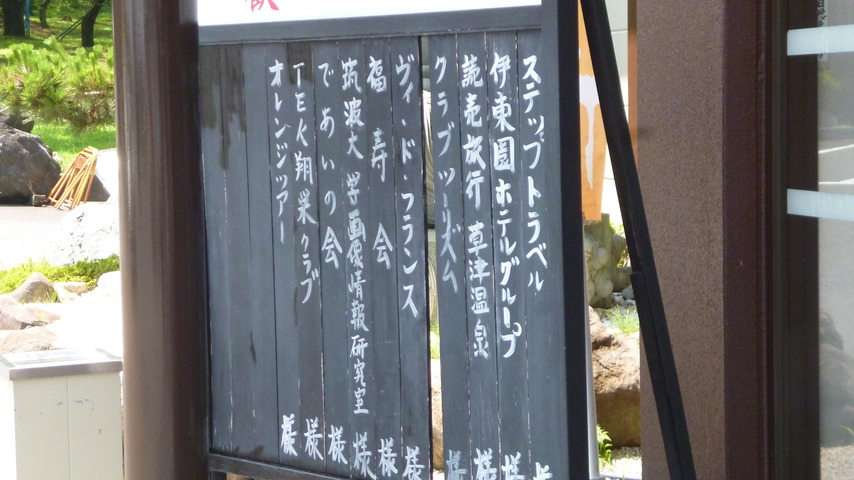 歓
ステップトラベル 様
伊東園ホテルグループ 様
読売旅行 草津温泉 様
クラブツーリズム 様
ヴィド・フランス 様
福寿会 様
筑波大 学画像情報研究室 様
であいの会 様
TEK翔栄クラブ 様
オレンジツアー 様